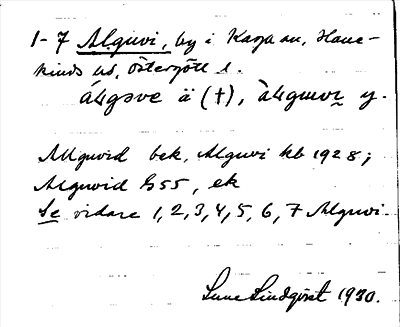 1-7 Alguvi, by i Kaga sn, Hane-
kinds hd, Östergötl l.
ä (†), y.
Alguvid bek, Alguvi kb 1928;
Alguvid G55, ek
Se vidare 1, 2, 3, 4, 5, 6, 7 Alguvi.
Sune Lindqvist 1930.